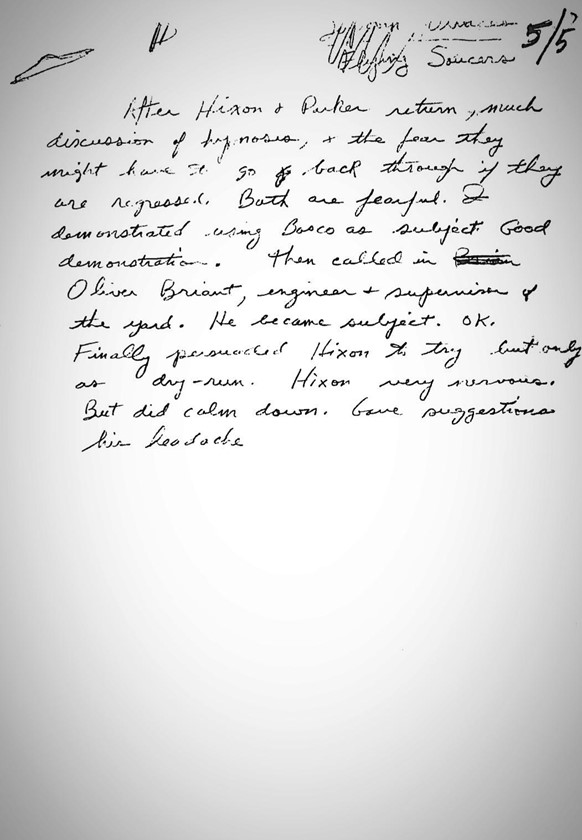 5/5
Flying Saucers
After Hixon & Parker return, much
discussion of hypnosis, & the fear they
might have to go back through if they
are regressed. Both are fearful. I
demonstrated using Bosco as subject. Good
demonstration. Then called in
Oliver Briant, engineer & supervisor of
the yard. He became subject. OK.
Finally persuaded Hixon to try but only
as dry-run. Hixon very nervous.
But did calm down. Gave suggestions
his headache